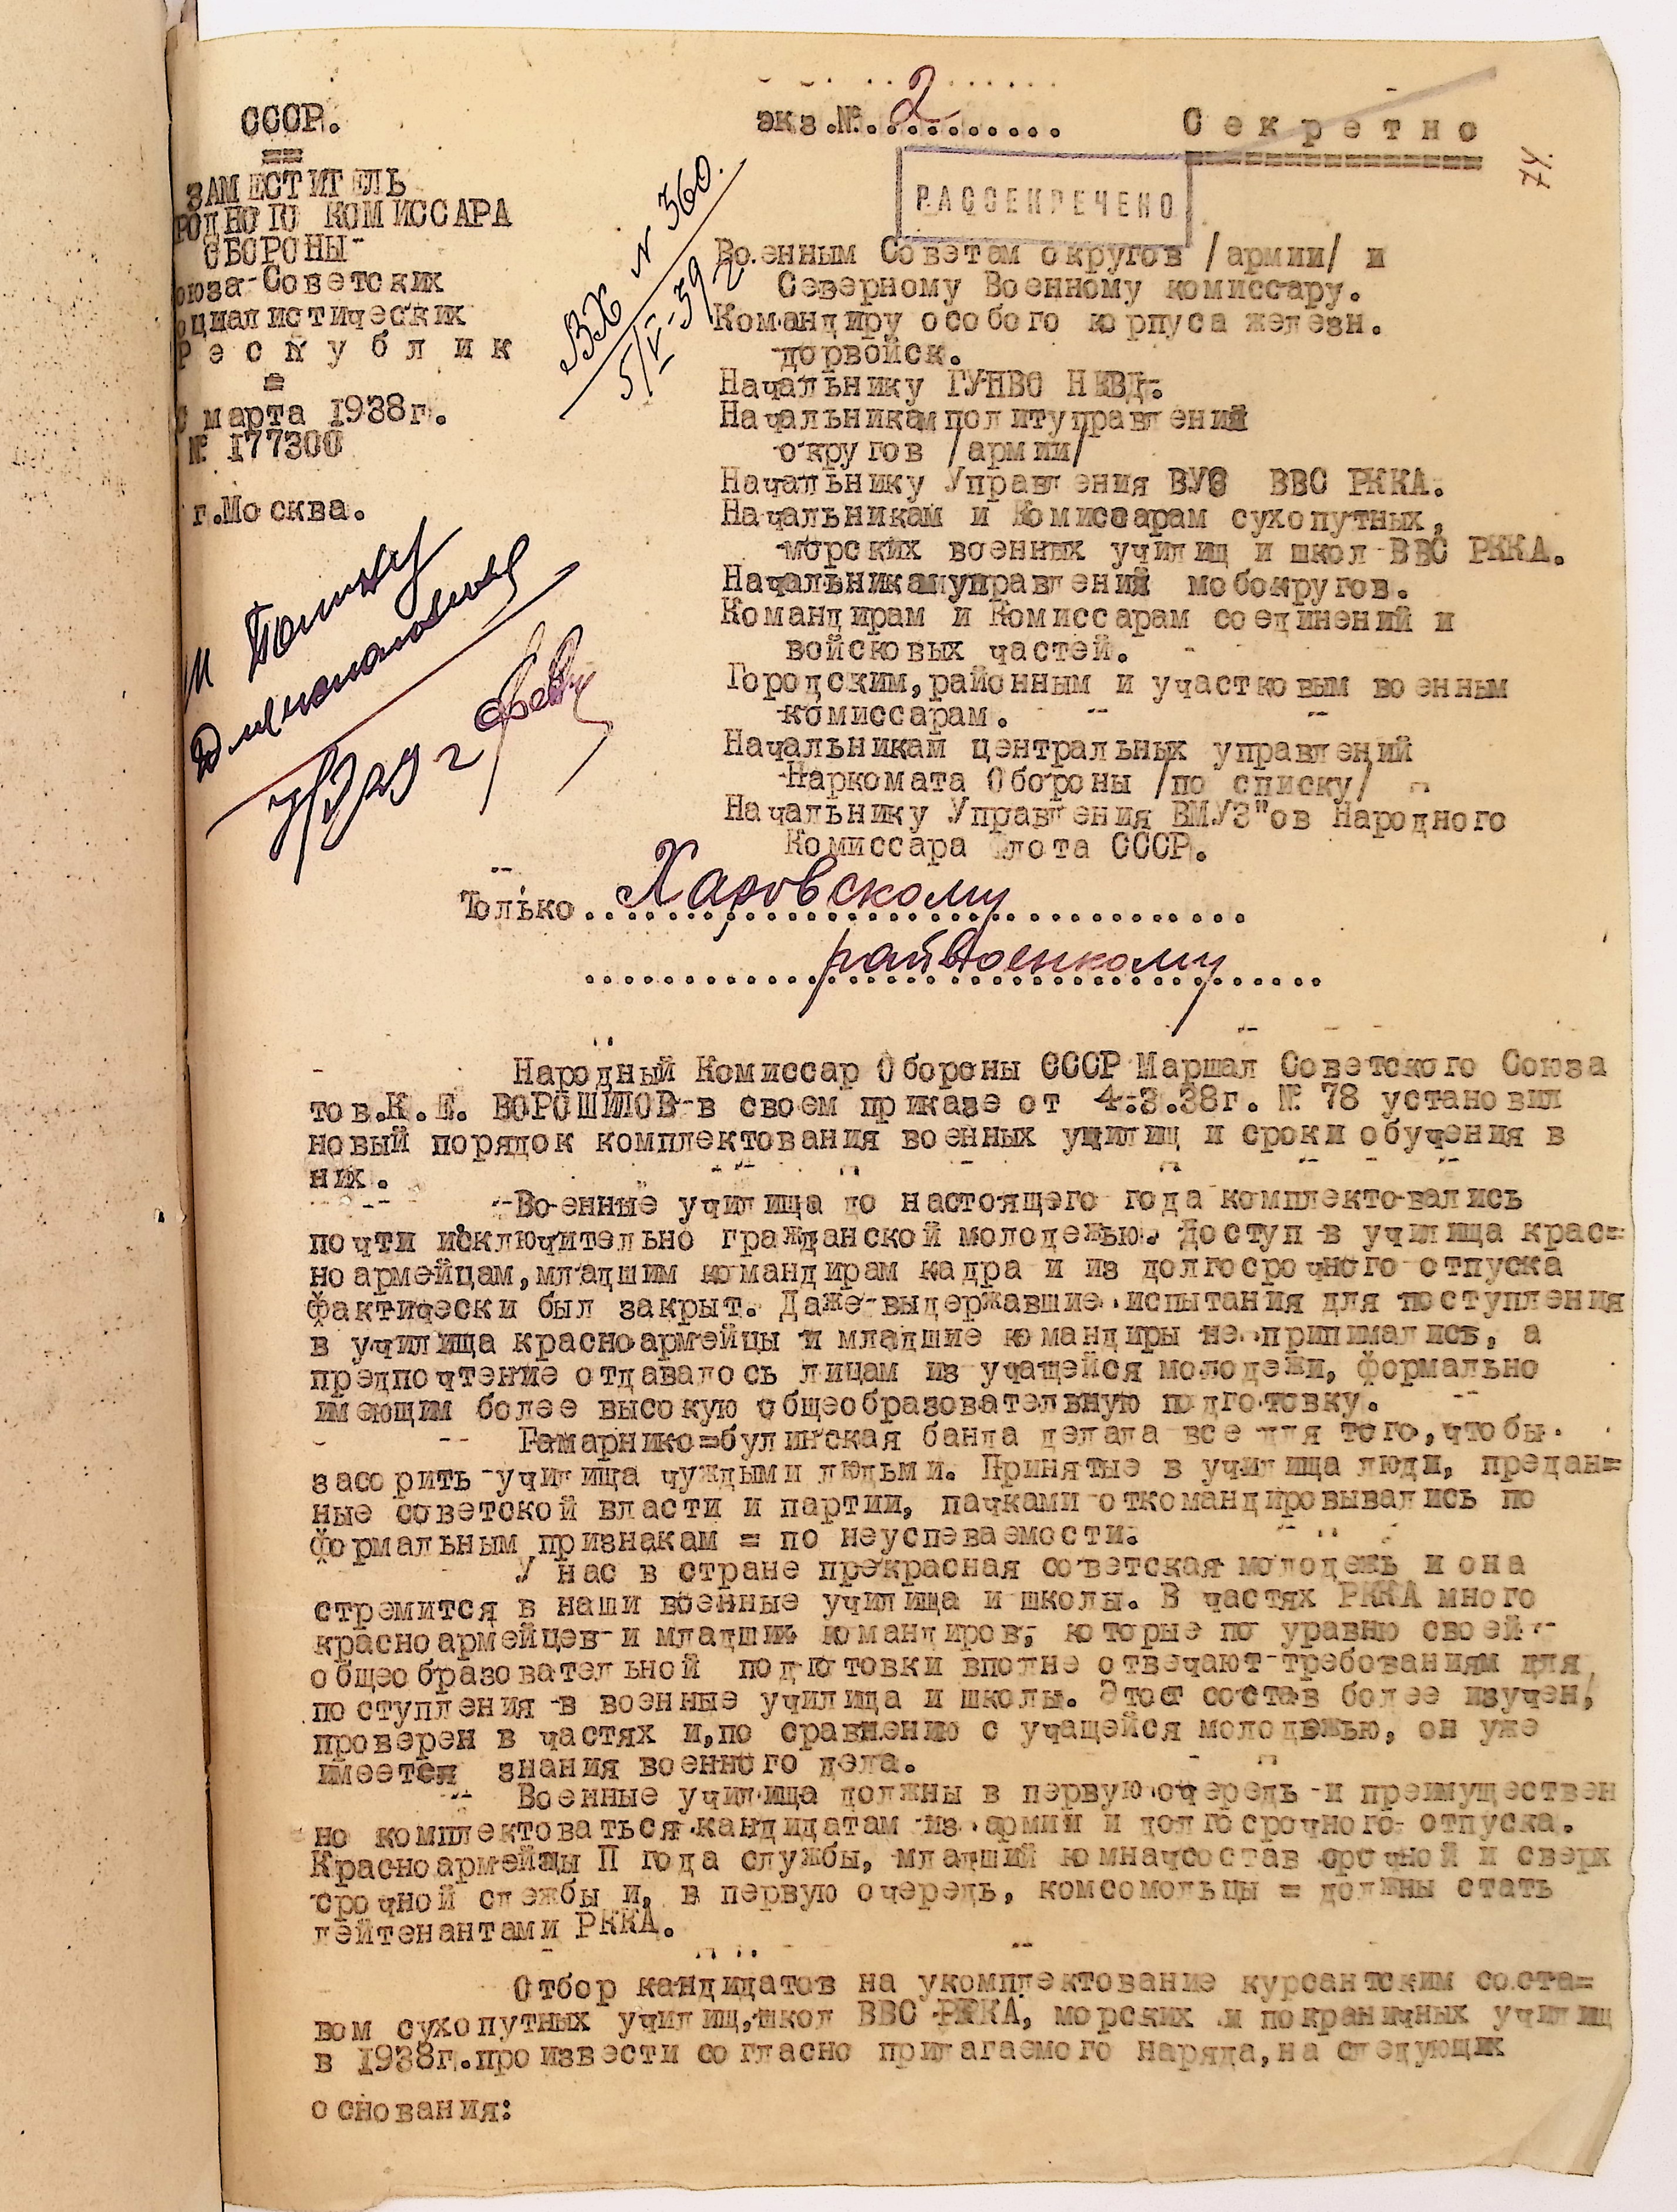 экз.№.2.........
Секретно
74.
РАССЕКРЕЧЕНО
СССР.
ЗАМЕСТИТЕЛЬ
РОДНОГО КОМИССАРА
ОБОРОНЫ
оюза Советских
оциалистических
Республик
марта 1938г.
№ 177300
г.Москва.
ВХ N 360.
Военным Советам округов /армии/ и
Северному Военному комиссару.
Командиру особого корпуса железн.
дорвойск.
Начальнику ГУПВО НКВД.
Начальникам политуправлений
округов /армии/
Начальнику Управления ВУЗ ВВС РККА.
Начальникам и Комиссарам сухопутных,
морских военных училищ и школ ВВС РККА.
Начальникам управлений мобокругов.
Командирам и Комиссарам соединений и
войсковых частей.
Городским, районным и участковым военным
комиссарам.
Начальникам центральных управлений
Наркомата Обороны /по списку/
Начальнику Управления ВМУЗ"ов Народного
Комиссара Флота СССР.
Только Харовскому
райвоенкому
Народный Комиссар Обороны СССР Маршал Советского Союза
тов.К.Е. ВОРОШИЛОВ в своем приказе от 4.3.38г. № 78 установил
новый порядок комплектования военных училищ и сроки обучения в
них.
Военные училища до настоящего года комплектовались
почти исключительно гражданской молодежью. Доступ в училища крас=
ноармейцам, младшим командирам кадра и из долгосрочного отпуска
фактически был закрыт. Даже выдержавшие испытания для поступления
в училища красноармейцы и младшие командиры не принимались, а
предпочтение отдавалось лицам из учащейся молодежи, формально
имеющим более высокую общеобразовательную подготовку.
Гамарнико=булинская банда делала все для того, чтобы
засорить училища чуждыми людьми. Принятые в училища люди, предан=
ные советской власти и партии, пачками откомандировывались по
формальным признакам = по неуспеваемости.
У нас в стране прекрасная советская молодежь и она
стремится в наши военные училища и школы. В частях РККА много
красноармейцев и младших командиров, которые по уравню своей
общеобразовательной подготовки вполне отвечают требованиям для
поступления в военные училища и школы. Этот состав более изучен,
проверен в частях и, по сравнению с учащейся молодежью, он уже
имеется знания военного дела.
Военные училища должны в первую очередь и преимуществен
но комплектоваться кандидатам из армии и долгосрочного отпуска.
Красноармейцы II года службы, младший комначсостав срочной и сверх
срочной службы и, в первую очередь, комсомольцы = должны стать
лейтенантами РККА.
Отбор кандидатов на укомплектование курсантским соста=
вом сухопутных училищ, школ ВВС РККА, морских и пограничных училищ
в 1938г. произвести согласно прилагаемого наряда, на следующих
основания: